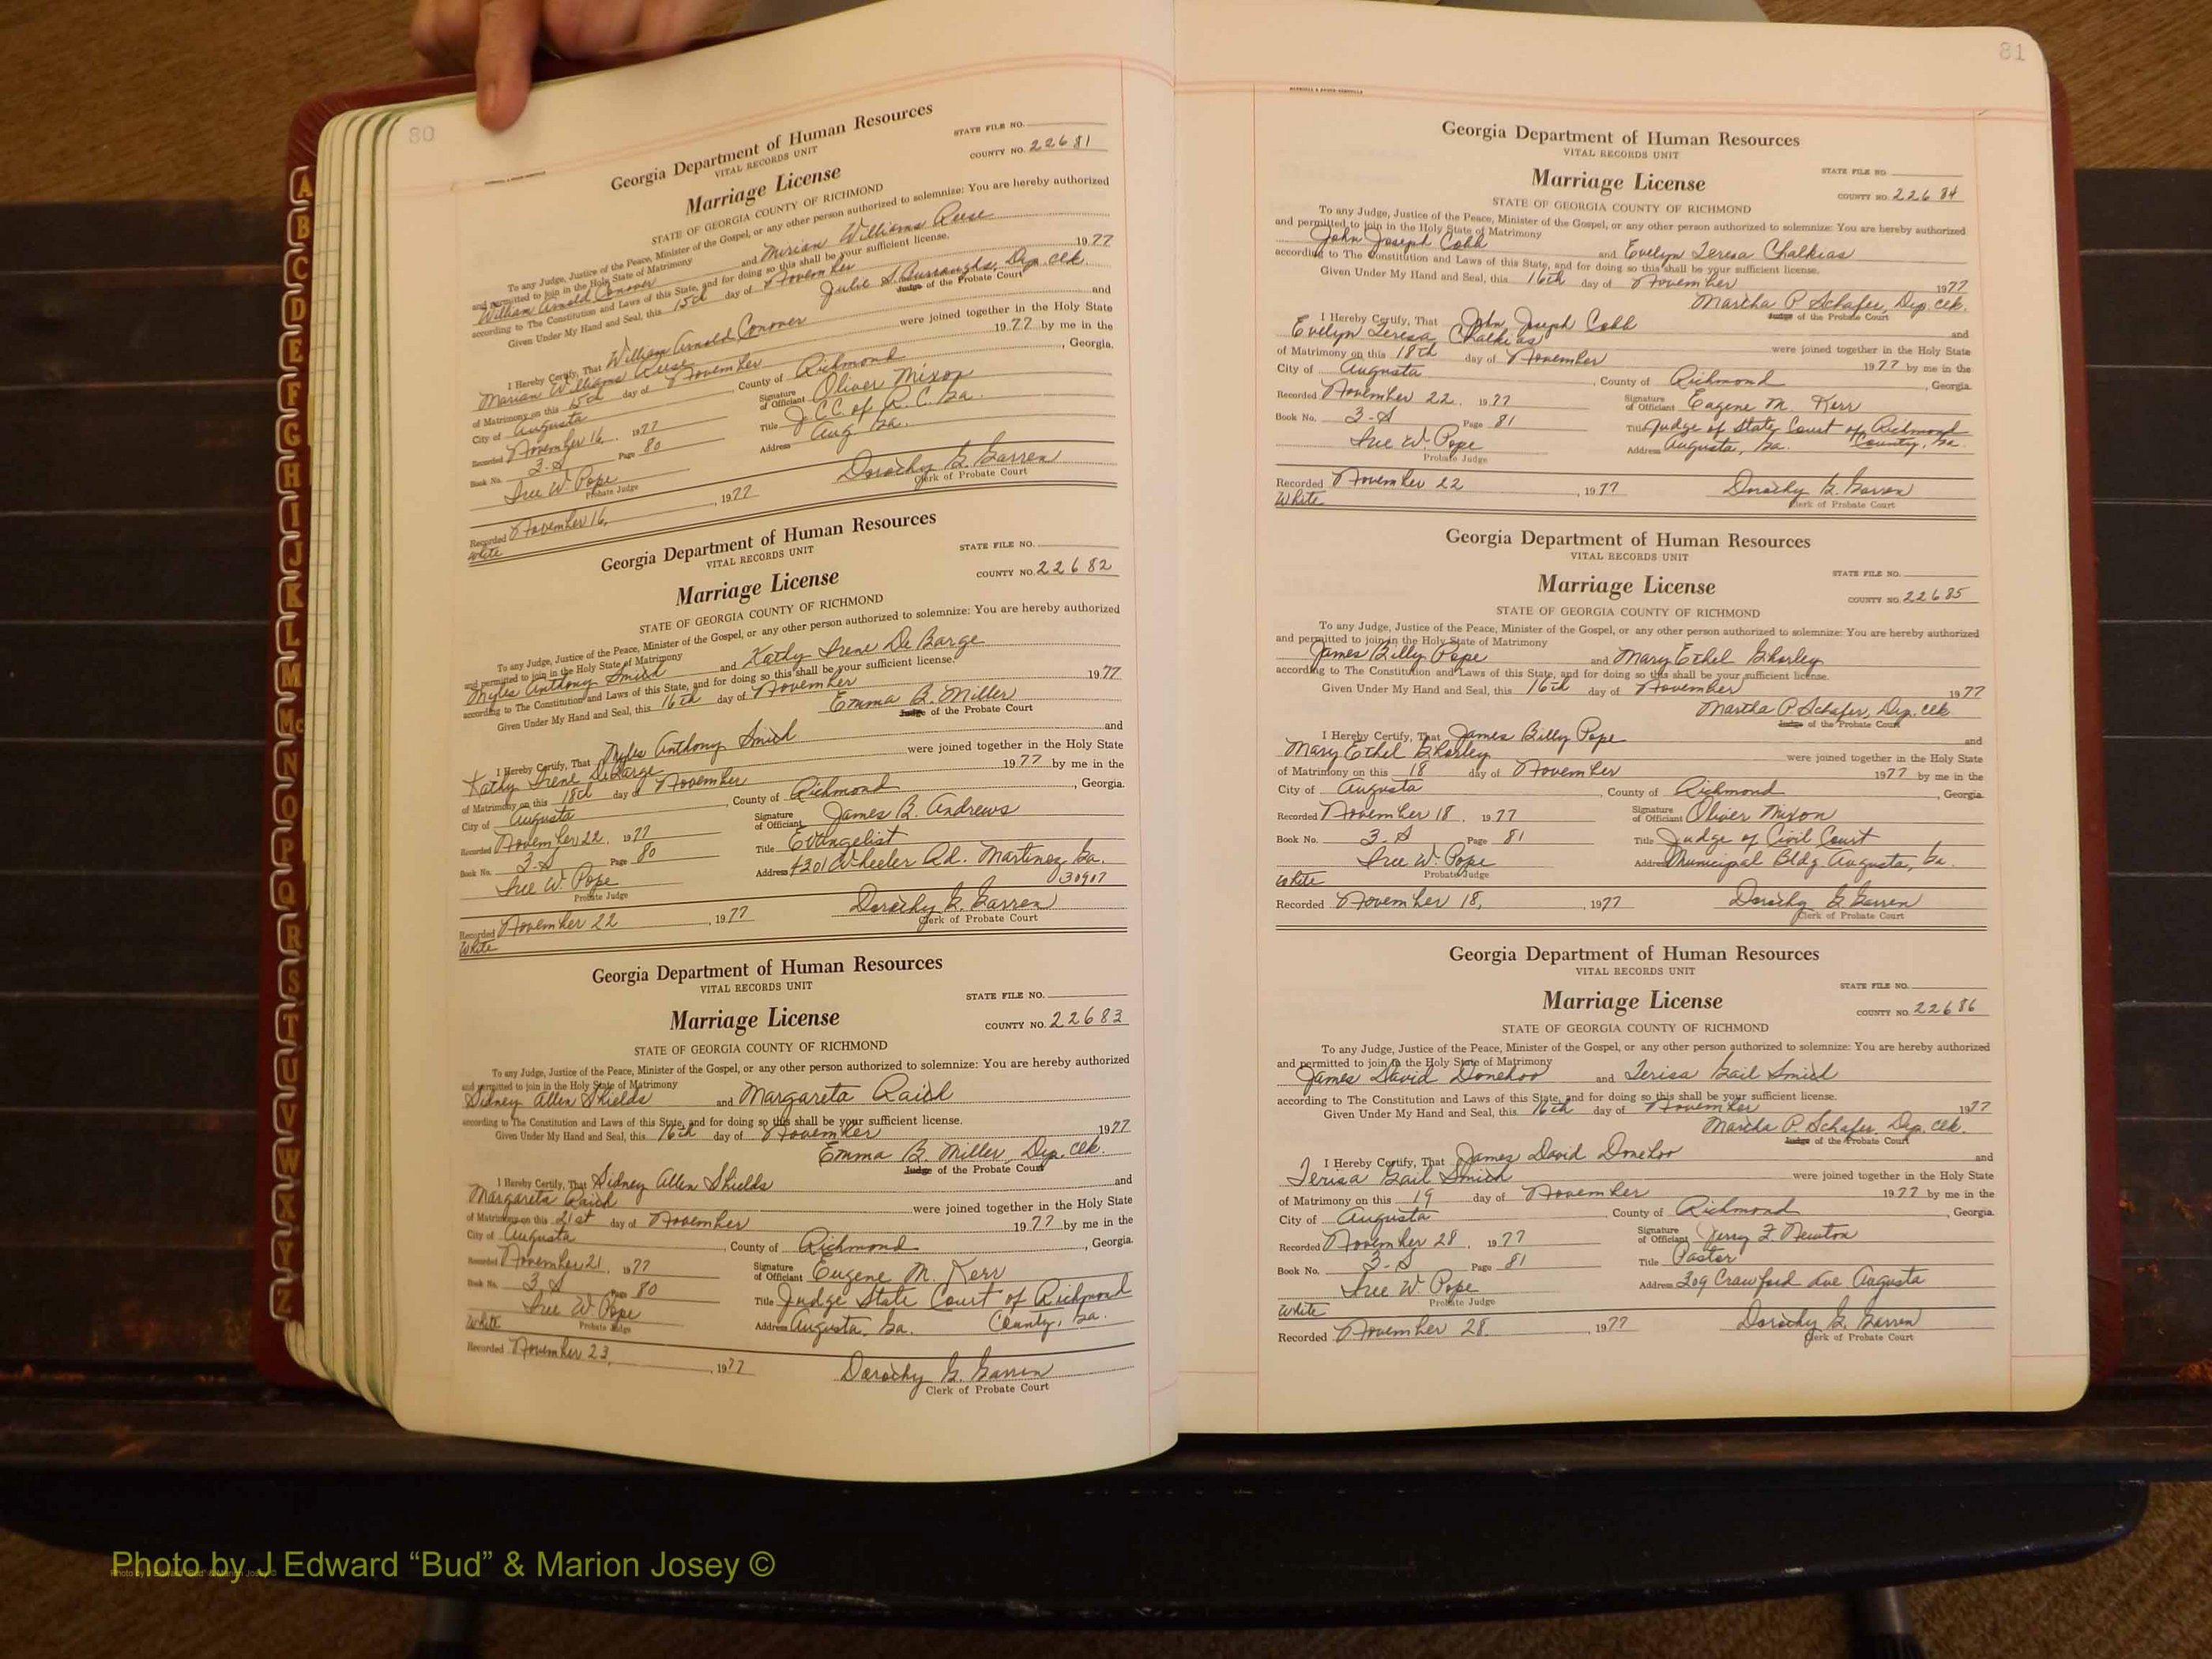 80
Georgia Department of Human Resources
VITAL RECORDS UNIT
STATE FILE NO.
COUNTY NO. 22681
Marriage License
STATE OF GEORGIA COUNTY OF RICHMOND
To any Judge, Justice of the Peace, Minister of the Gospel, or any other person authorized to solemnize: You are hereby authorized
and permitted to join in the Holy State of Matrimony
William Arnold Conover and Mirian Williams Reese
according to The Constitution and Laws of this State, and for doing so this shall be your sufficient license.
Given Under My Hand and Seal, this 15th day of November 1977
Julie S. Burroughs, Dep. Clk.
Judge of the Probate Court
I Hereby Certify, That William Arnold Conover and
Marian Williams Reese were joined together in the Holy State
of Matrimony on this 15th day of November 1977 by me in the
City of Augusta, County of Richmond, Georgia.
Recorded November 16, 1977 Signature of Officiant Oliver Mixon
Book No. 3-S Page 80 Title J.C.C. of R.C. Ga.
Sue W. Pope Address Aug Ga.
Probate Judge
Recorded November 16, 1977 Dorothy G. Garren
White Clerk of Probate Court
Georgia Department of Human Resources
VITAL RECORDS UNIT
STATE FILE NO.
COUNTY NO. 22682
Marriage License
STATE OF GEORGIA COUNTY OF RICHMOND
To any Judge, Justice of the Peace, Minister of the Gospel, or any other person authorized to solemnize: You are hereby authorized
and permitted to join in the Holy State of Matrimony
Myles Anthony Smith and Kathy Irene De Barge
according to The Constitution and Laws of this State, and for doing so this shall be your sufficient license.
Given Under My Hand and Seal, this 16th day of November 1977
Emma B. Miller
Judge of the Probate Court
I Hereby Certify, That Myles Anthony Smith and
Kathy Irene DeBarge were joined together in the Holy State
of Matrimony on this 18th day of November 1977 by me in the
City of Augusta, County of Richmond, Georgia.
Recorded November 22, 1977 Signature of Officiant James B. Andrews
Book No. 3-S Page 80 Title Evangelist
Sue W. Pope Address 4201 Wheeler Rd. Martinez Ga.
Probate Judge 30907
Recorded November 22, 1977 Dorothy G. Garren
White Clerk of Probate Court
Georgia Department of Human Resources
VITAL RECORDS UNIT
STATE FILE NO.
Marriage License COUNTY NO. 22683
STATE OF GEORGIA COUNTY OF RICHMOND
To any Judge, Justice of the Peace, Minister of the Gospel, or any other person authorized to solemnize: You are hereby authorized
and permitted to join in the Holy State of Matrimony
Sidney Allen Shields and Margareta Raith
according to The Constitution and Laws of this State, and for doing so this shall be your sufficient license.
Given Under My Hand and Seal, this 16th day of November 1977
Emma B. Miller, Dep. Clk.
Judge of the Probate Court
I Hereby Certify, That Sidney Allen Shields and
Margareta Raith were joined together in the Holy State
of Matrimony on this 21st day of November 1977 by me in the
City of Augusta, County of Richmond, Georgia.
Recorded November 21, 1977 Signature of Officiant Eugene M. Kerr
Book No. 3-S Page 80 Title Judge State Court of Richmond
Sue W. Pope Address Augusta, Ga. County, Ga.
White Probate Judge
Recorded November 23, 1977 Dorothy G. Garren
Clerk of Probate Court
81
Georgia Department of Human Resources
VITAL RECORDS UNIT
STATE FILE NO.
Marriage License COUNTY NO. 22684
STATE OF GEORGIA COUNTY OF RICHMOND
To any Judge, Justice of the Peace, Minister of the Gospel, or any other person authorized to solemnize: You are hereby authorized
and permitted to join in the Holy State of Matrimony
John Joseph Cobb and Evelyn Teresa Chalkias
according to The Constitution and Laws of this State, and for doing so this shall be your sufficient license.
Given Under My Hand and Seal, this 16th day of November 1977
Martha P. Schafer, Dep. Clk.
Judge of the Probate Court
I Hereby Certify, That John Joseph Cobb and
Evelyn Teresa Chalkias were joined together in the Holy State
of Matrimony on this 18th day of November 1977 by me in the
City of Augusta, County of Richmond, Georgia.
Recorded November 22, 1977 Signature of Officiant Eugene M. Kerr
Book No. 3-S Page 81 Title Judge of State Court of Richmond
Sue W. Pope Address Augusta, Ga. County, Ga.
Probate Judge
Recorded November 22, 1977 Dorothy G. Garren
White Clerk of Probate Court
Georgia Department of Human Resources
VITAL RECORDS UNIT
STATE FILE NO.
Marriage License COUNTY NO. 22685
STATE OF GEORGIA COUNTY OF RICHMOND
To any Judge, Justice of the Peace, Minister of the Gospel, or any other person authorized to solemnize: You are hereby authorized
and permitted to join in the Holy State of Matrimony
James Billy Pope and Mary Ethel Ghorley
according to The Constitution and Laws of this State, and for doing so this shall be your sufficient license.
Given Under My Hand and Seal, this 16th day of November 1977
Martha P. Schafer, Dep. Clk
Judge of the Probate Court
I Hereby Certify, That James Billy Pope and
Mary Ethel Ghorley were joined together in the Holy State
of Matrimony on this 18 day of November 1977 by me in the
City of Augusta, County of Richmond, Georgia.
Recorded November 18, 1977 Signature of Officiant Oliver Mixon
Book No. 3-S Page 81 Title Judge of Civil Court
Sue W. Pope Address Municipal Bldg. Augusta, Ga.
White Probate Judge
Recorded November 18, 1977 Dorothy G. Garren
Clerk of Probate Court
Georgia Department of Human Resources
VITAL RECORDS UNIT
STATE FILE NO.
Marriage License COUNTY NO. 22686
STATE OF GEORGIA COUNTY OF RICHMOND
To any Judge, Justice of the Peace, Minister of the Gospel, or any other person authorized to solemnize: You are hereby authorized
and permitted to join in the Holy State of Matrimony
James David Donehoo and Terisa Gail Smith
according to The Constitution and Laws of this State, and for doing so this shall be your sufficient license.
Given Under My Hand and Seal, this 16th day of November 1977
Martha P. Schafer, Dep. Clk.
Judge of the Probate Court
I Hereby Certify, That James David Donehoo and
Terisa Gail Smith were joined together in the Holy State
of Matrimony on this 19 day of November 1977 by me in the
City of Augusta, County of Richmond, Georgia.
Recorded November 28, 1977 Signature of Officiant Jerry F. Newton
Book No. 3-S Page 81 Title Pastor
Sue W. Pope Address 309 Crawford Ave Augusta
White Probate Judge
Recorded November 28, 1977 Dorothy G. Garren
Clerk of Probate Court
A
B
C
D
E
F
G
H
I
J
K
L
M
Mc
N
O
P
Q
R
S
T
U
V
W
X
Y
Z
Photo by J Edward “Bud” & Marion Josey ©
Photo by J Edward “Bud” & Marion Josey ©